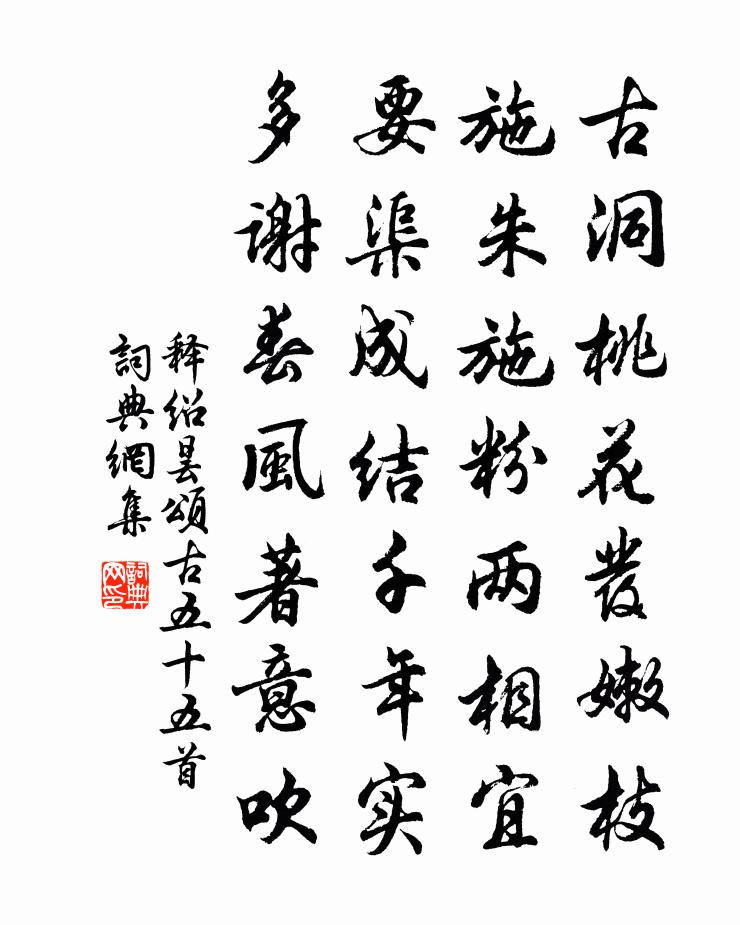 古洞桃花發嫩枝
施朱施粉兩相宜
要渠成結千年实
多謝春風著意吹
释绍昙頌古五十五首
詞典網集
詞典网印